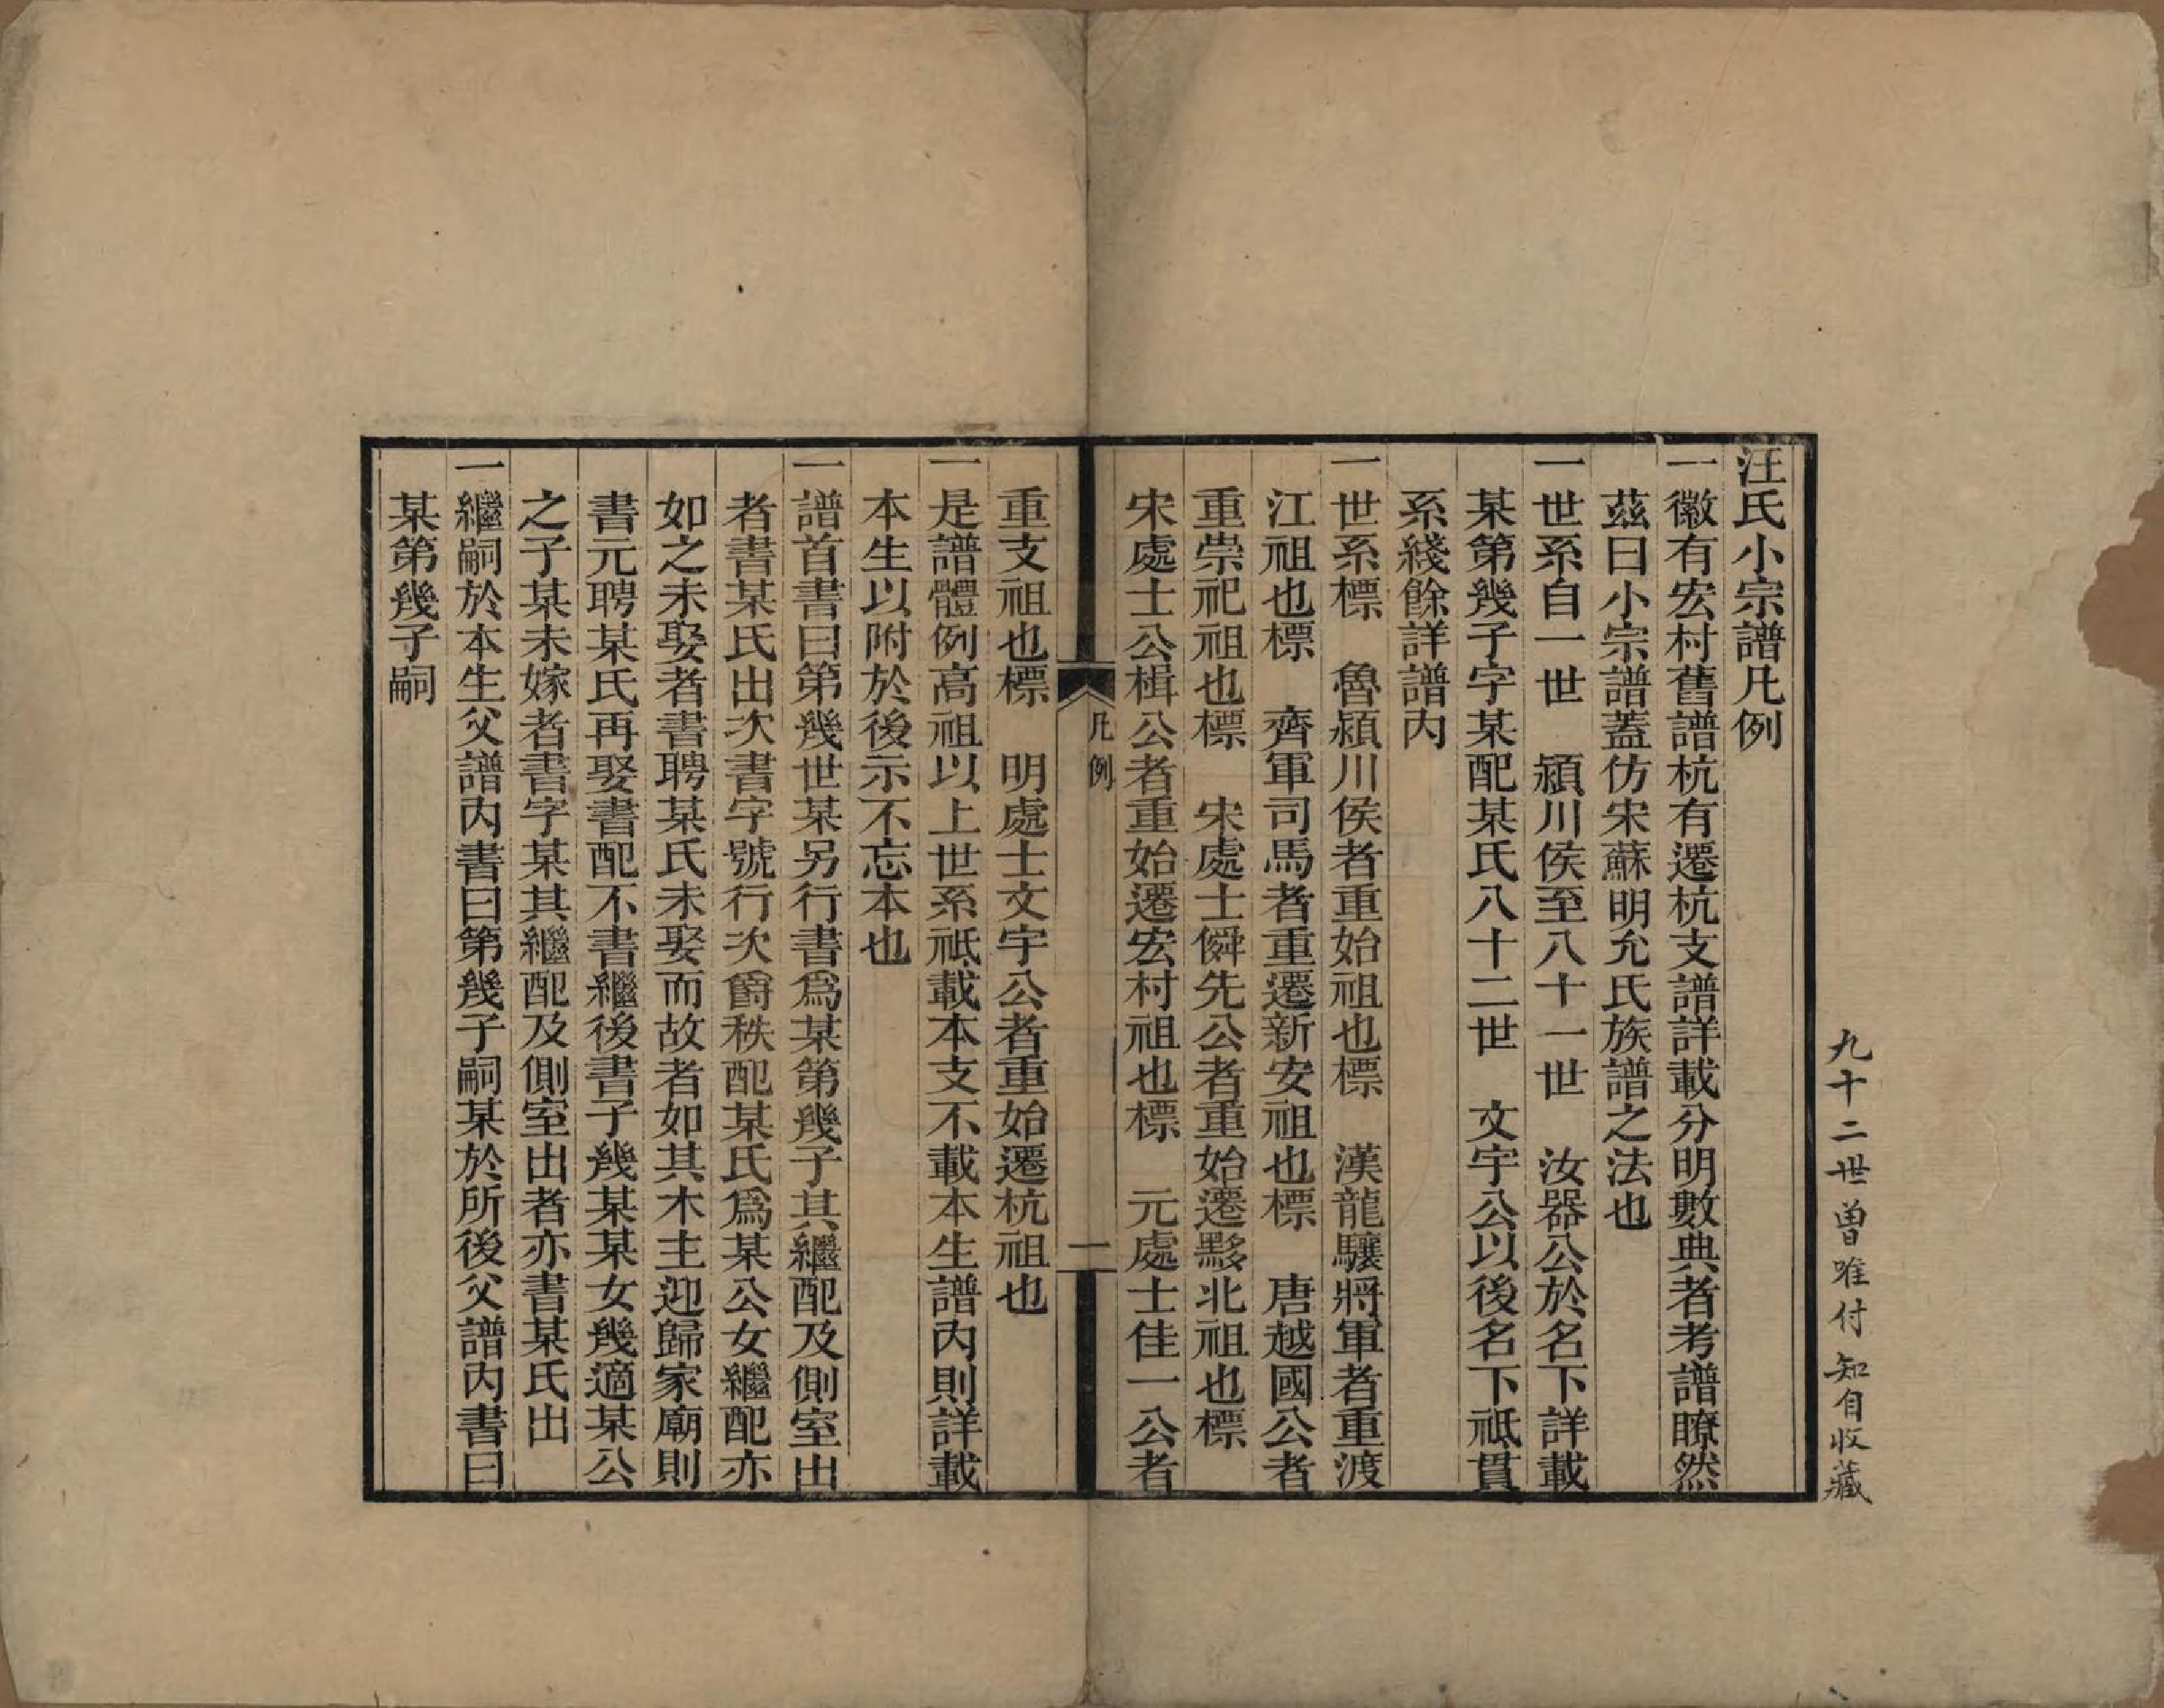 九十二世曾唯付知自收藏
汪氏小宗譜凡例
一徽有宏村舊譜杭有遷杭支譜詳載分明數典者考譜瞭然
茲曰小宗譜蓋仿宋蘇明允氏族譜之法也
一世系自一世　潁川侯至八十一世　汝器公於名下詳載
某第幾子字某配某氏八十二世　文宇公以後名下祗貫
系綫餘詳譜內
一世系標　魯潁川侯者重始祖也標　漢龍驤將軍者重渡
江祖也標　齊軍司馬者重遷新安祖也標　唐越國公者
重崇祀祖也標　宋處士僢先公者重始遷黟北祖也標
宋處士公楫公者重始遷宏村祖也標　元處士佳一公者
凡例
一
重支祖也標　明處士文宇公者重始遷杭祖也
一是譜體例高祖以上世系祗載本支不載本生譜內則詳載
本生以附於後示不忘本也
一譜首書曰第幾世某另行書爲某第幾子其繼配及側室出
者書某氏出次書字號行次爵秩配某氏爲某公女繼配亦
如之未娶者書聘某氏未娶而故者如其木主迎歸家廟則
書元聘某氏再娶書配不書繼後書子幾某某女幾適某公
之子某未嫁者書字某其繼配及側室出者亦書某氏出
一繼嗣於本生父譜內書曰第幾子嗣某於所後父譜內書曰
某第幾子嗣